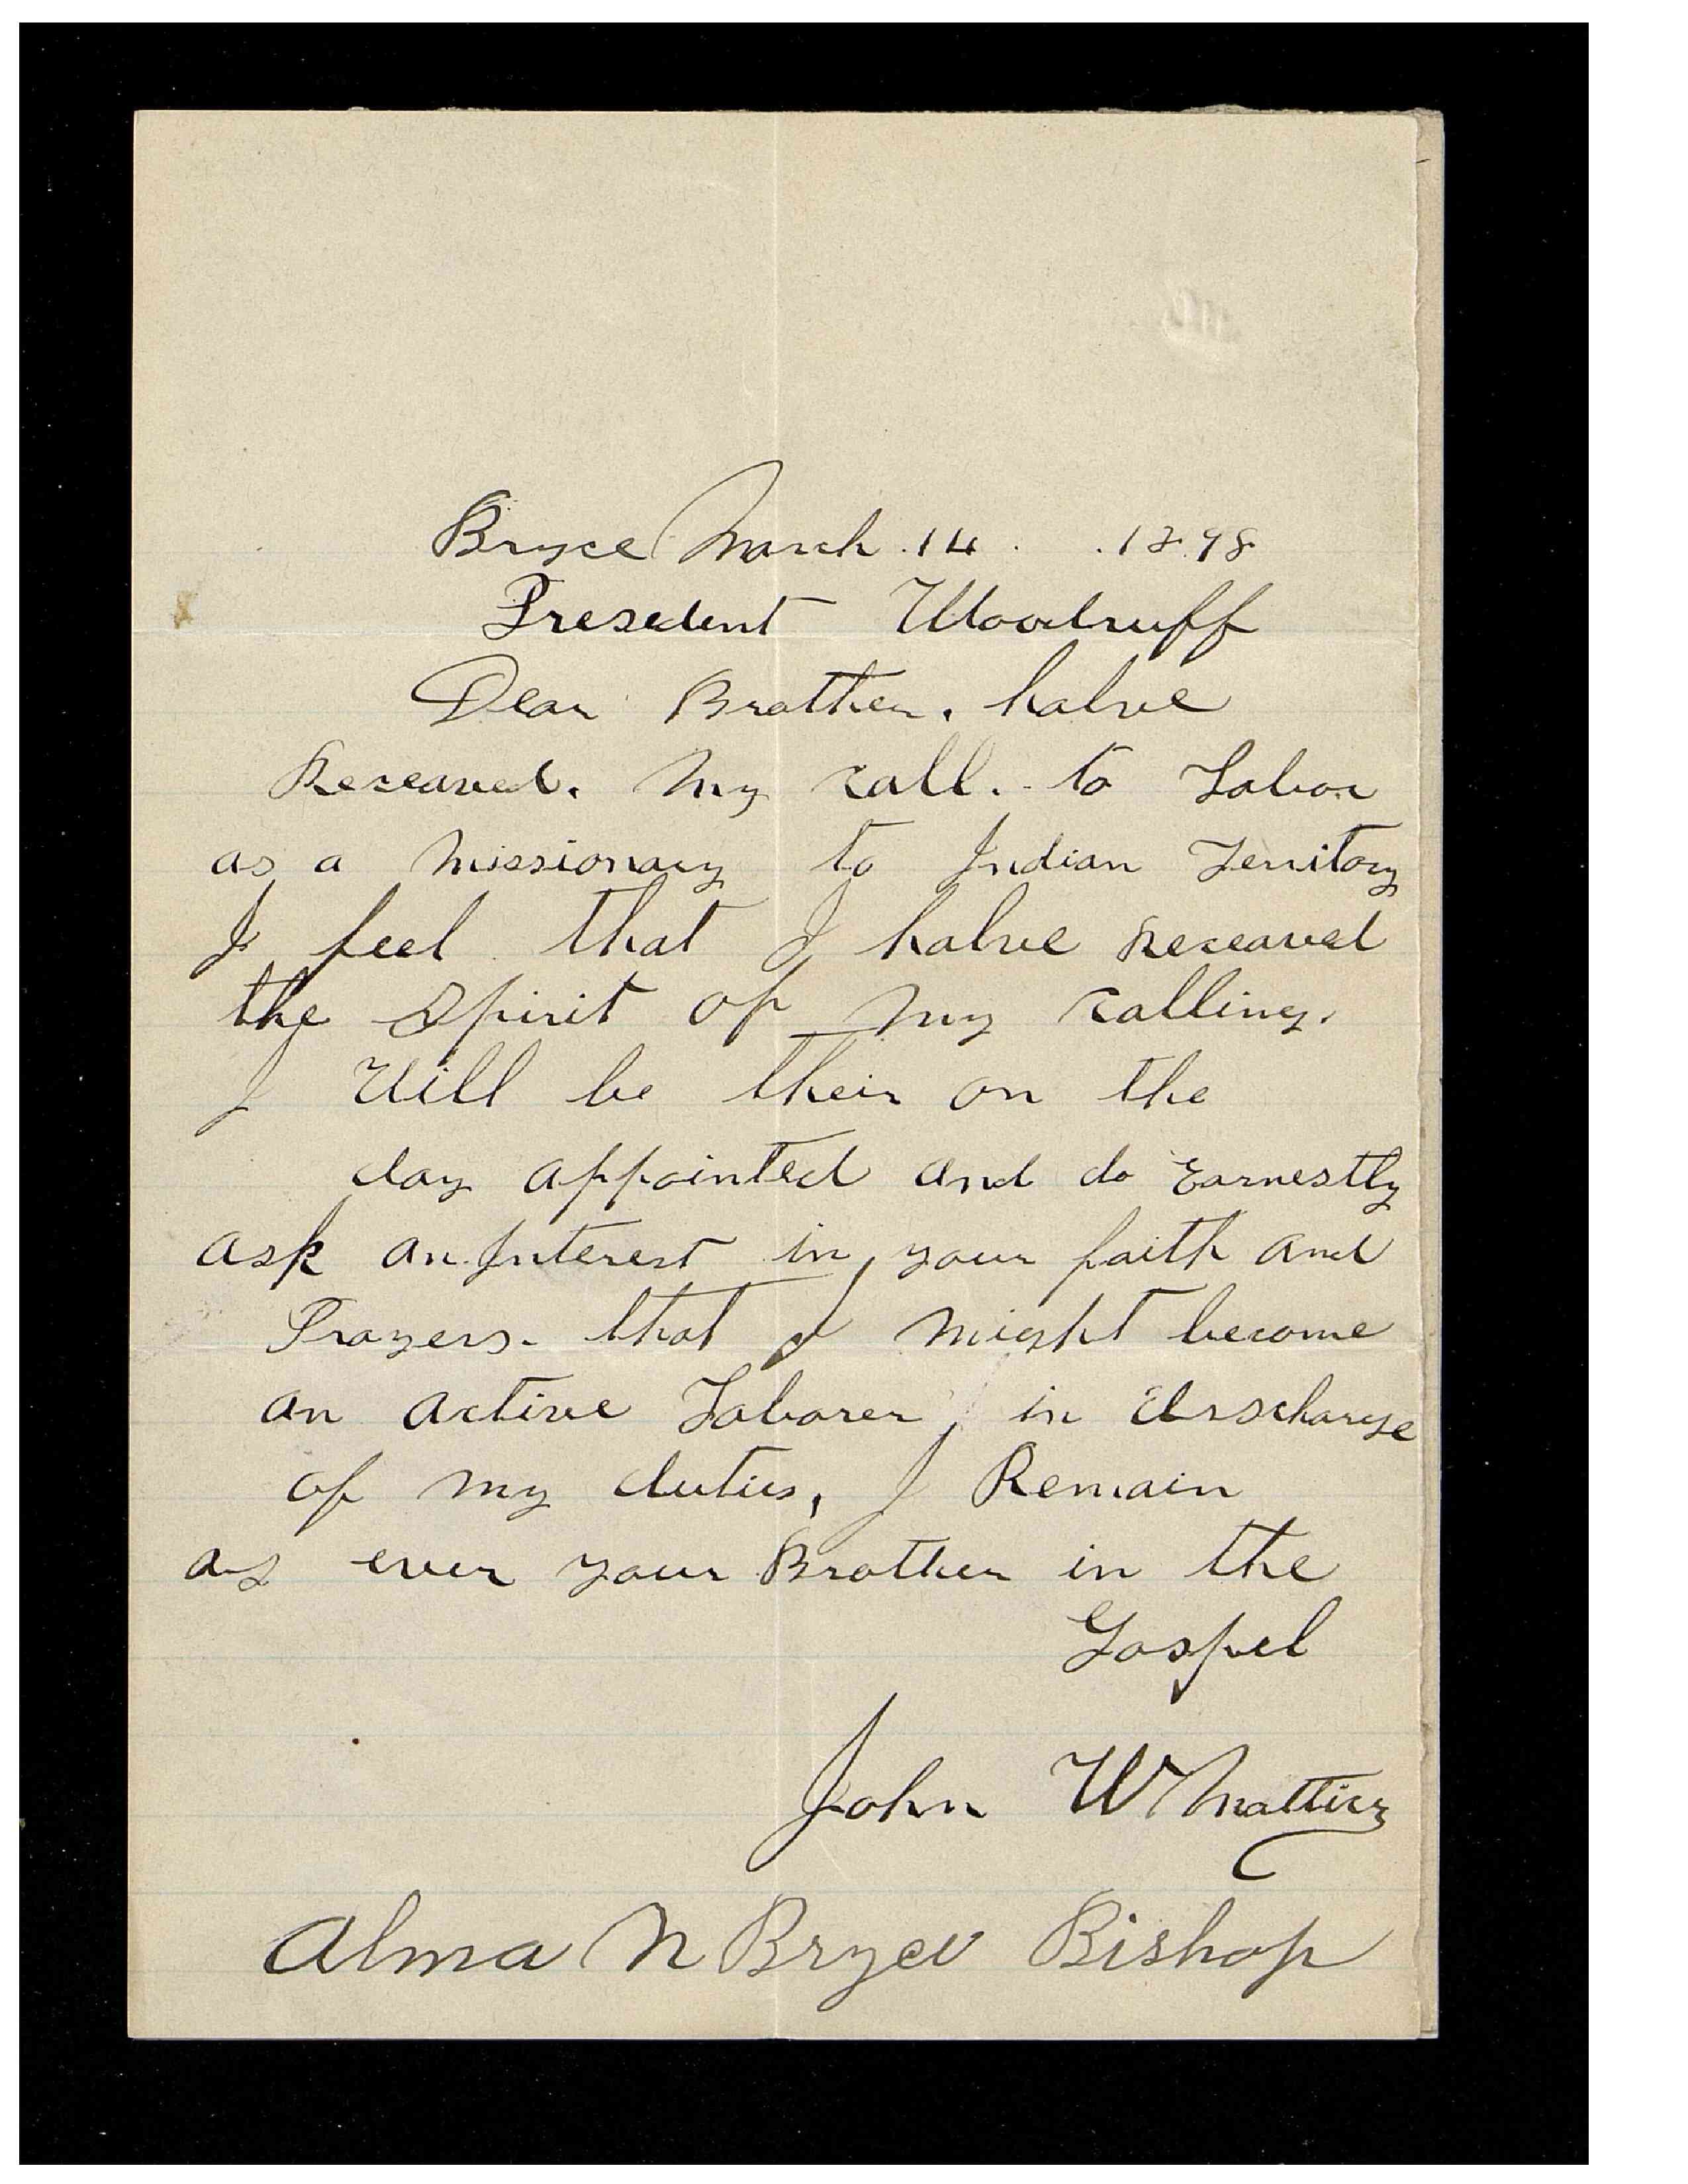 Bryce March . 14 . . 1898
Presedent Woodruff
Dear Brother. halve
Receaved. My call. to Labor
as a Missionary to Indian Territory
I feel that I halve Receaved
the Spirit of my calling.
I Will be their on the
day appointed and do Earnestly
ask an Interest in your faith and
Prayers. that I might become
an active Laborer, in discharge
of my duties, I Remain
as ever your Brother in the
Gospel
John W Mattice
Alma N Bryce Bishop